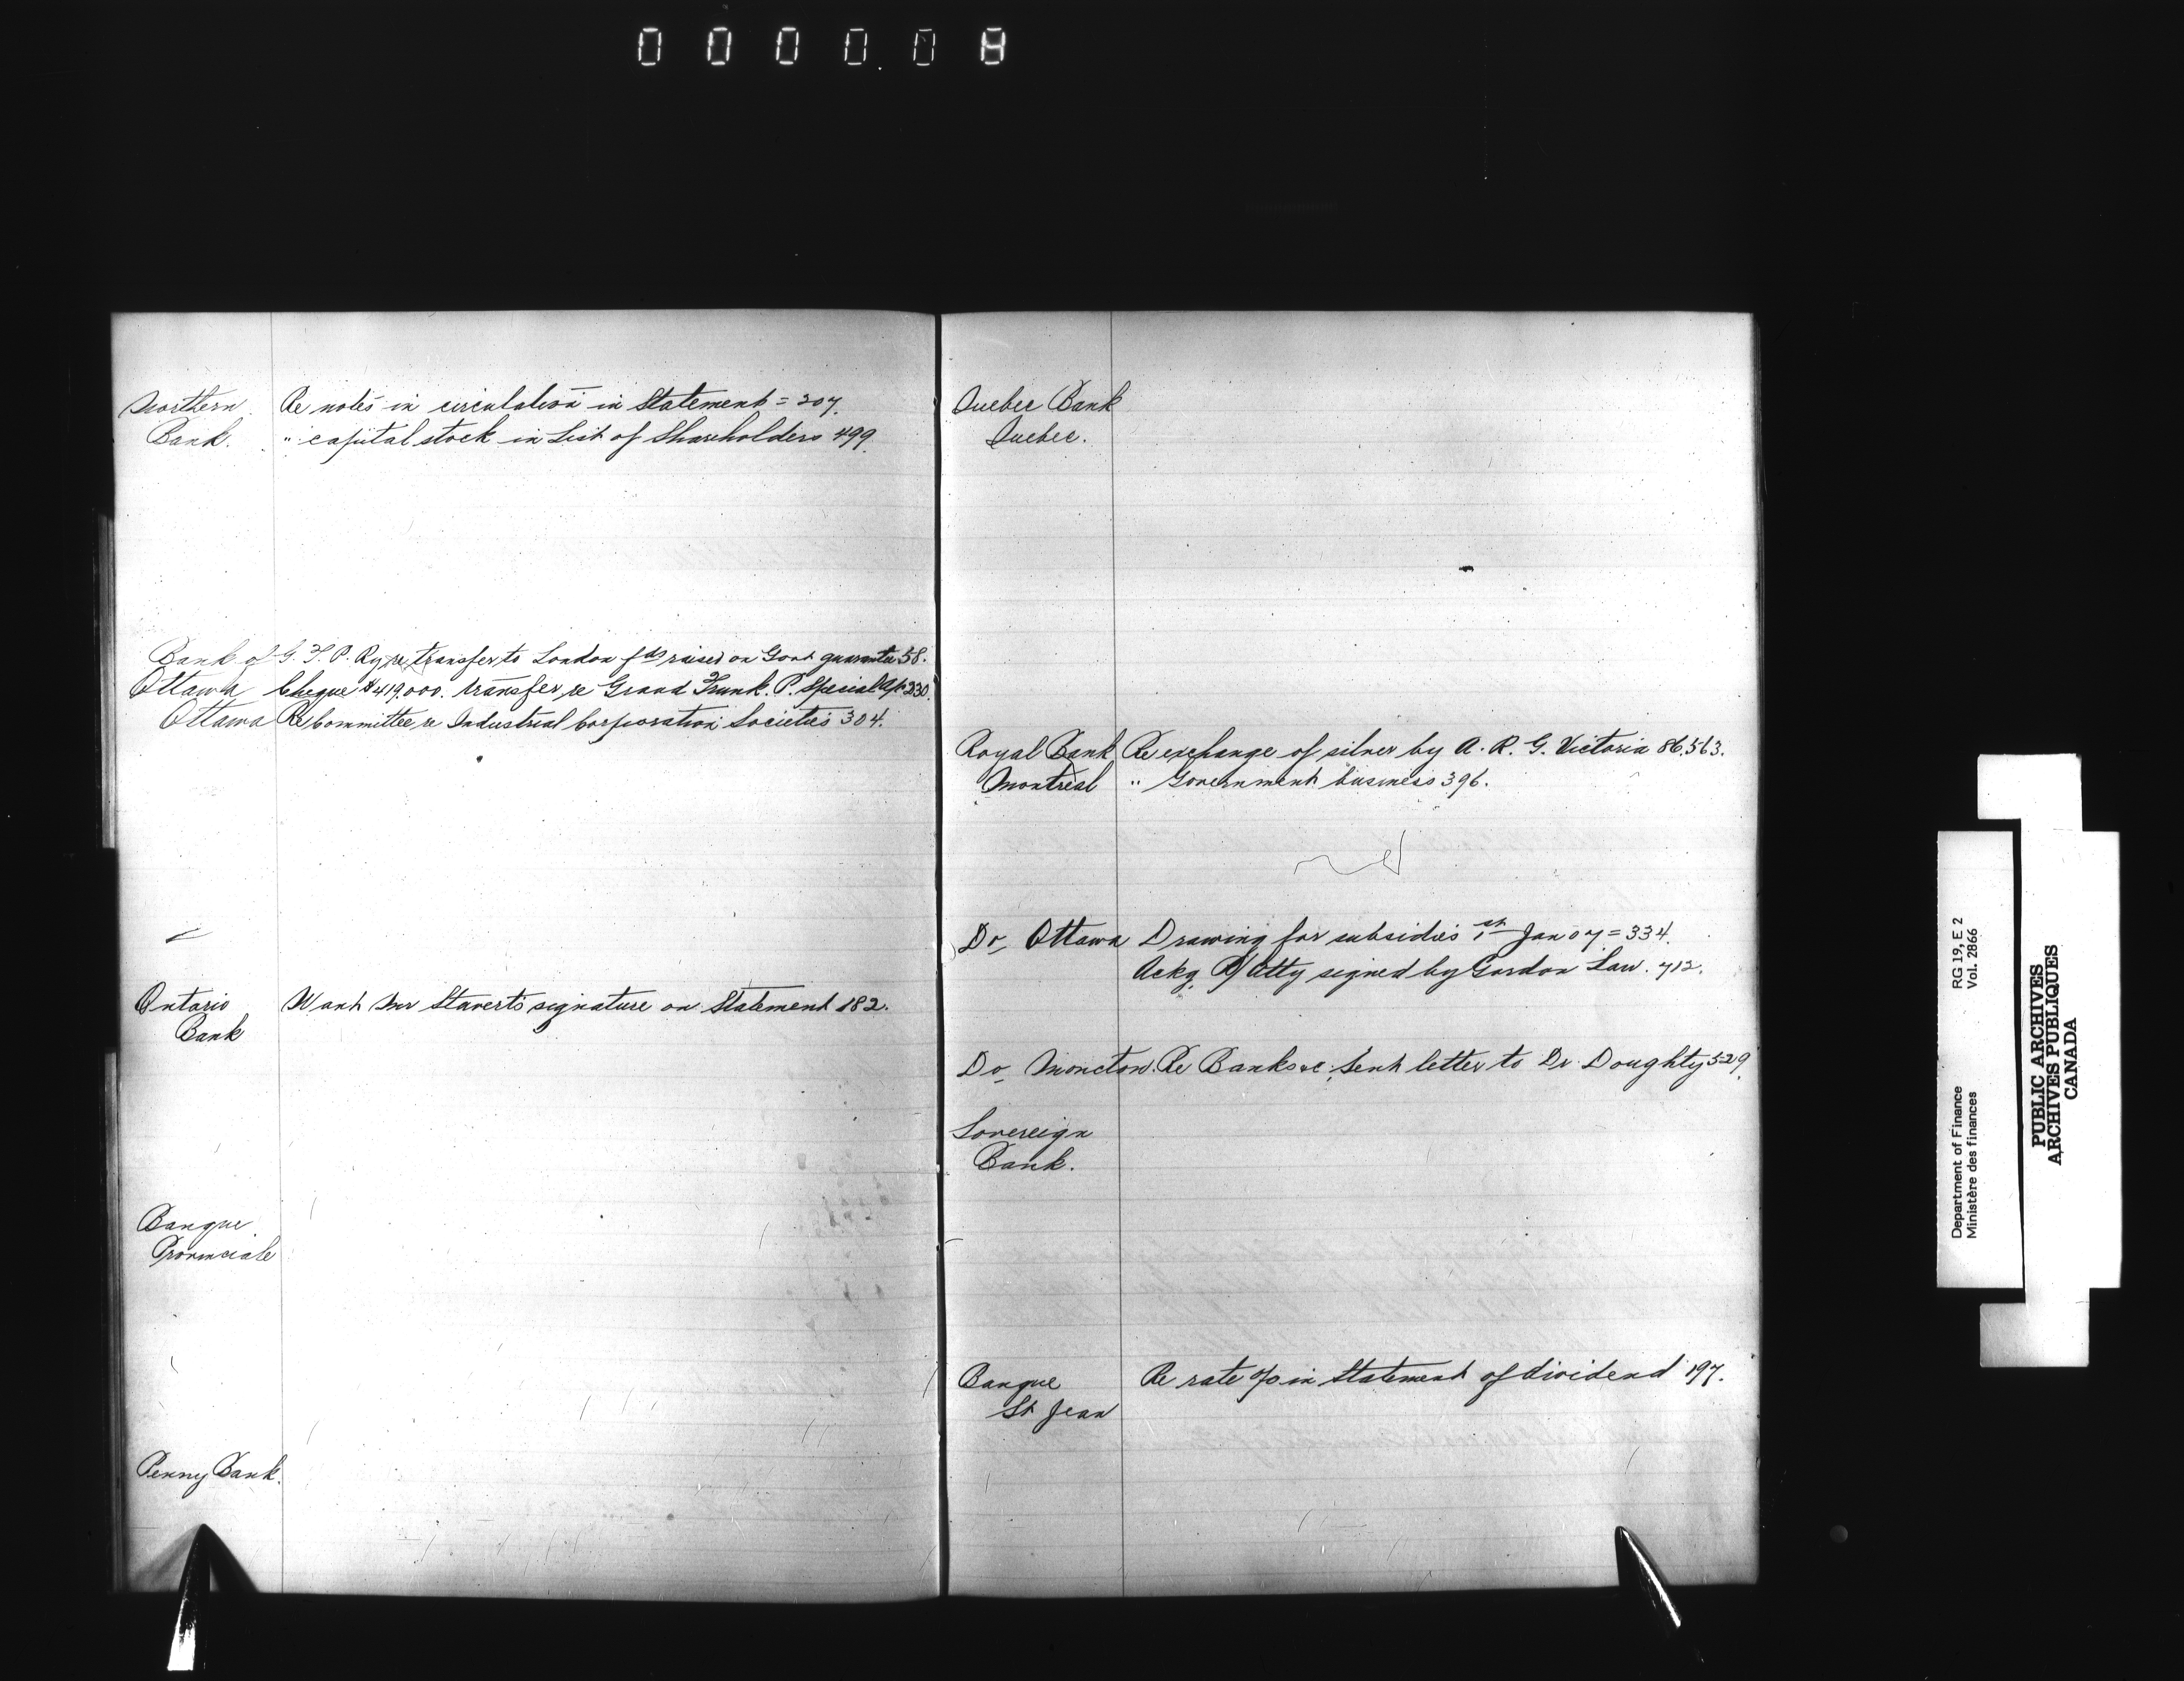 0 0 0 0. 0 8
Northern Re notes in circulation in Statement = 307.
Bank. " capital stock in List of Shareholders 499.
Bank of G. T. P. Ry re transfer to London fds raised on Govt guarantee 58.
Ottawa Cheque $419,000. transfer re Grand Trunk. P. Special a/c 230.
Ottawa Re Committee re Industrial Corporation Societies 304.
Ontario Want Mr Stavert's signature on Statement 182.
Bank
Banque
Provinciale
Penny Bank.
Quebec Bank
Quebec.
Royal Bank Re exchange of silver by A. R. G. Victoria 86,563.
Montreal " Government business 396.
Do Ottawa Drawing for subsidies 1st Jan 07 = 334.
Ackg P/Atty signed by Gordon Law. 712.
Do Moncton. Re Banks &c. Sent letter to Dr. Doughty 529.
Sovereign
Bank.
Banque Re rate % in Statement of dividend 197.
St Jean
RG 19, E 2
Vol. 2866
Department of Finance
Ministère des finances
PUBLIC ARCHIVES
ARCHIVES PUBLIQUES
CANADA